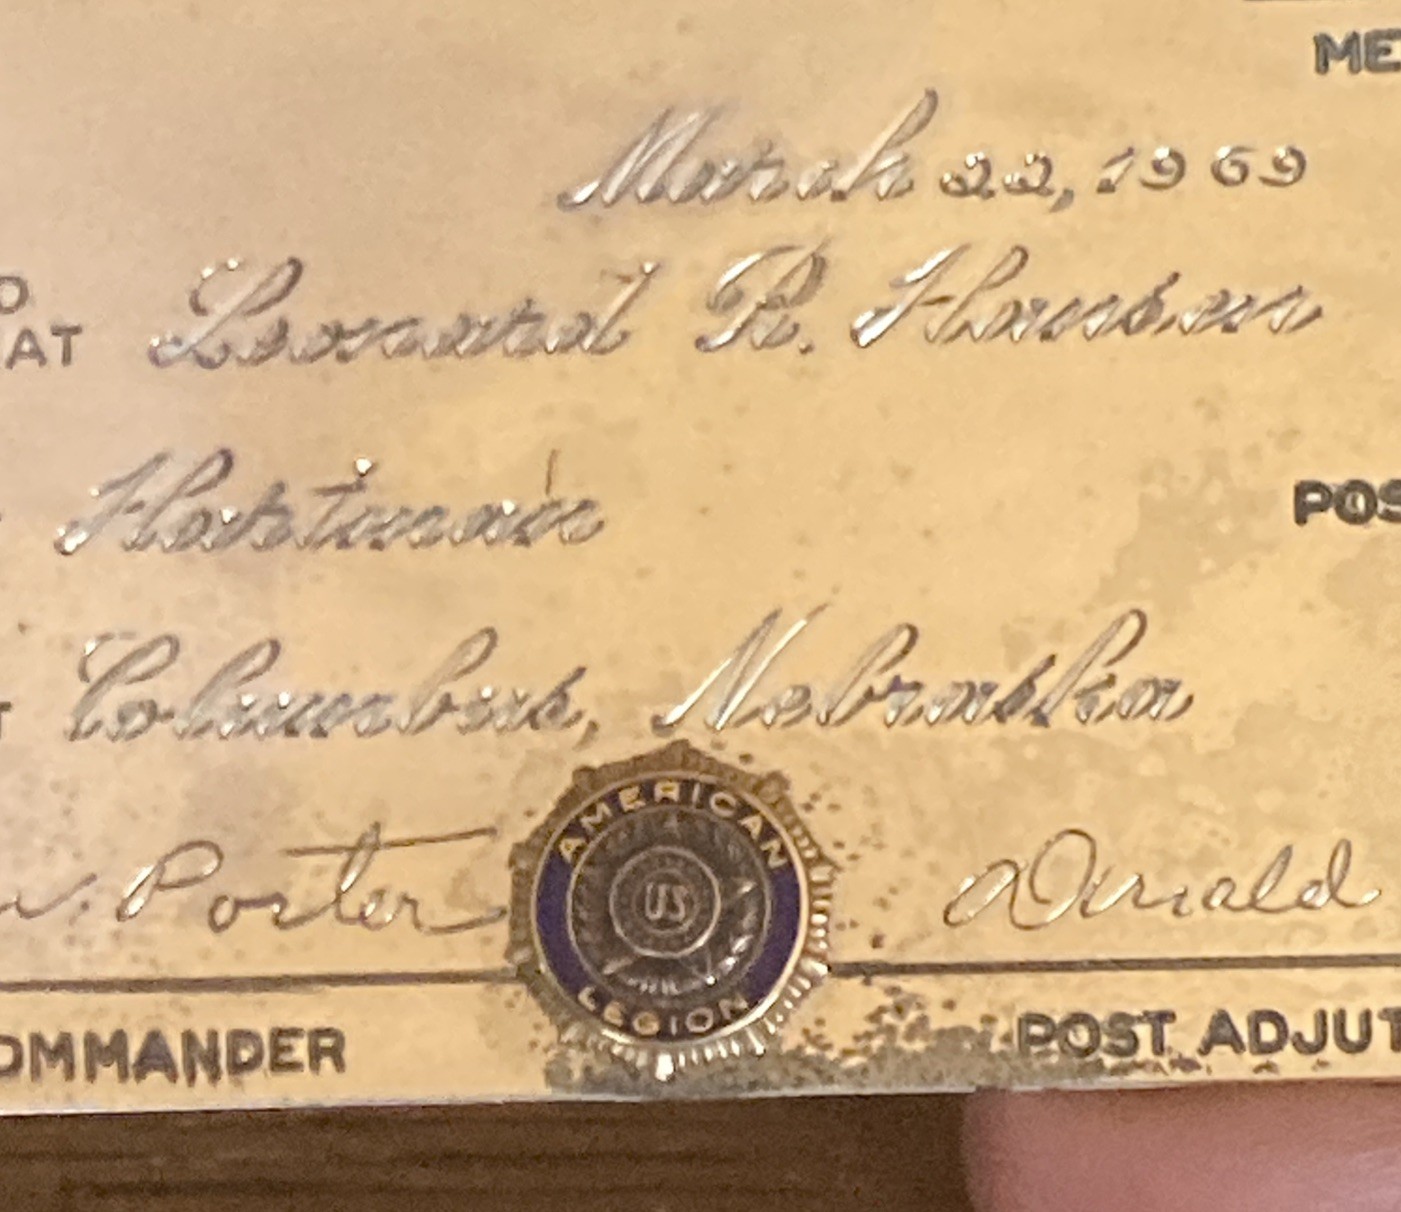 ME
March 22, 1969
O
AT Leonard R. Hansen
Hartman POS
T Columbus, Nebraska
W. Porter Donald
AMERICAN
US
LEGION
OMMANDER POST ADJUT